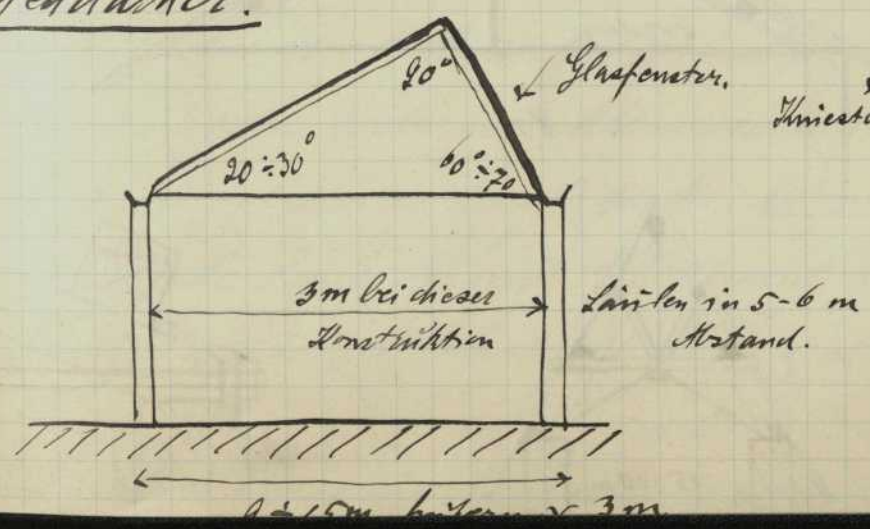 90°
Glasfenster.
20÷30°
60°÷70
3m bei dieser
Konstrŭktion
Säŭlen in 5-6 m
Abstand.
3m